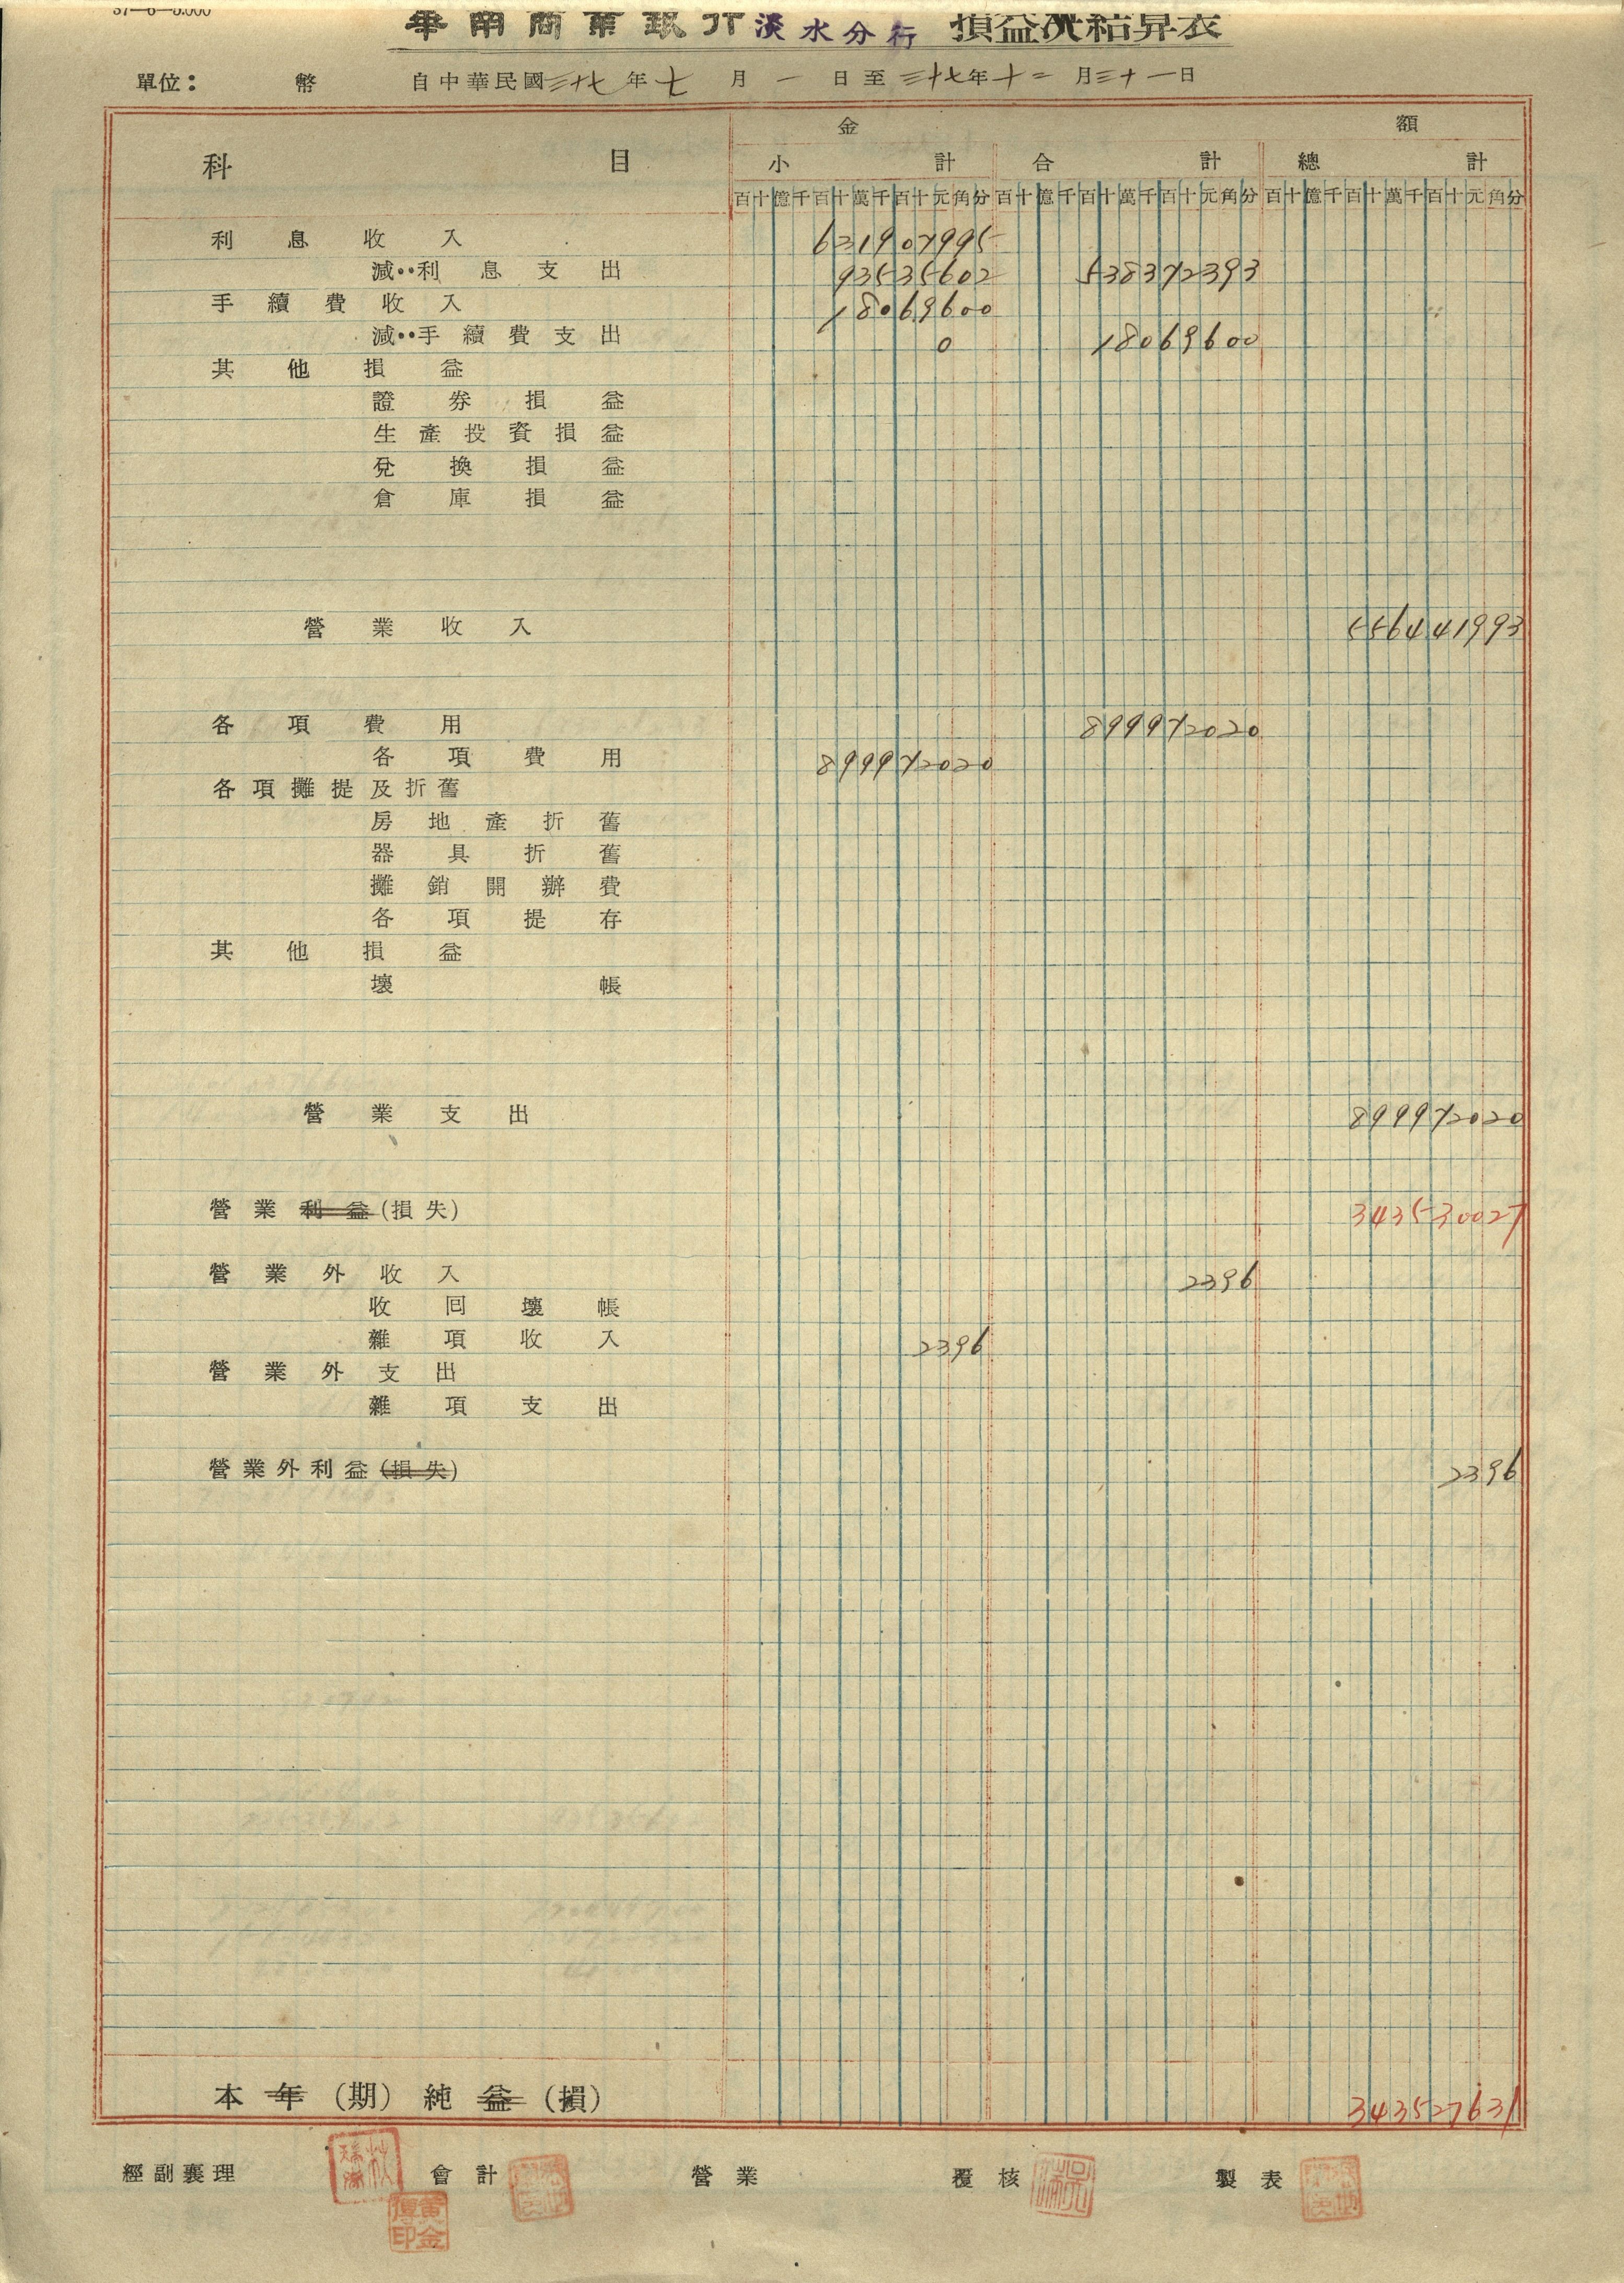 37—6—5.000
華南商業銀行淡水分行 損益決結算表
單位： 幣 自中華民國三十七年七月一日至三十七年十二月三十一日
金 額
科 目 小 計 合 計 總 計
百十億千百十萬千百十元角分 百十億千百十萬千百十元角分 百十億千百十萬千百十元角分
利息收入 631907995
減：利息支出 93535602 538372393
手續費收入 18069600
減：手續費支出 0 18069600
其他損益
證券損益
生產投資損益
兌換損益
倉庫損益
營業收入 556441993
各項費用 899972020
各項費用 899972020
各項攤提及折舊
房地產折舊
器具折舊
攤銷開辦費
各項提存
其他損益
壞帳
營業支出 899972020
營業利益(損失) 343530027
營業外收入 2396
收回壞帳
雜項收入 2396
營業外支出
雜項支出
營業外利益(損失) 2396
本年(期)純益(損) 343527631
經副襄理 會計 營業 覆核 製表